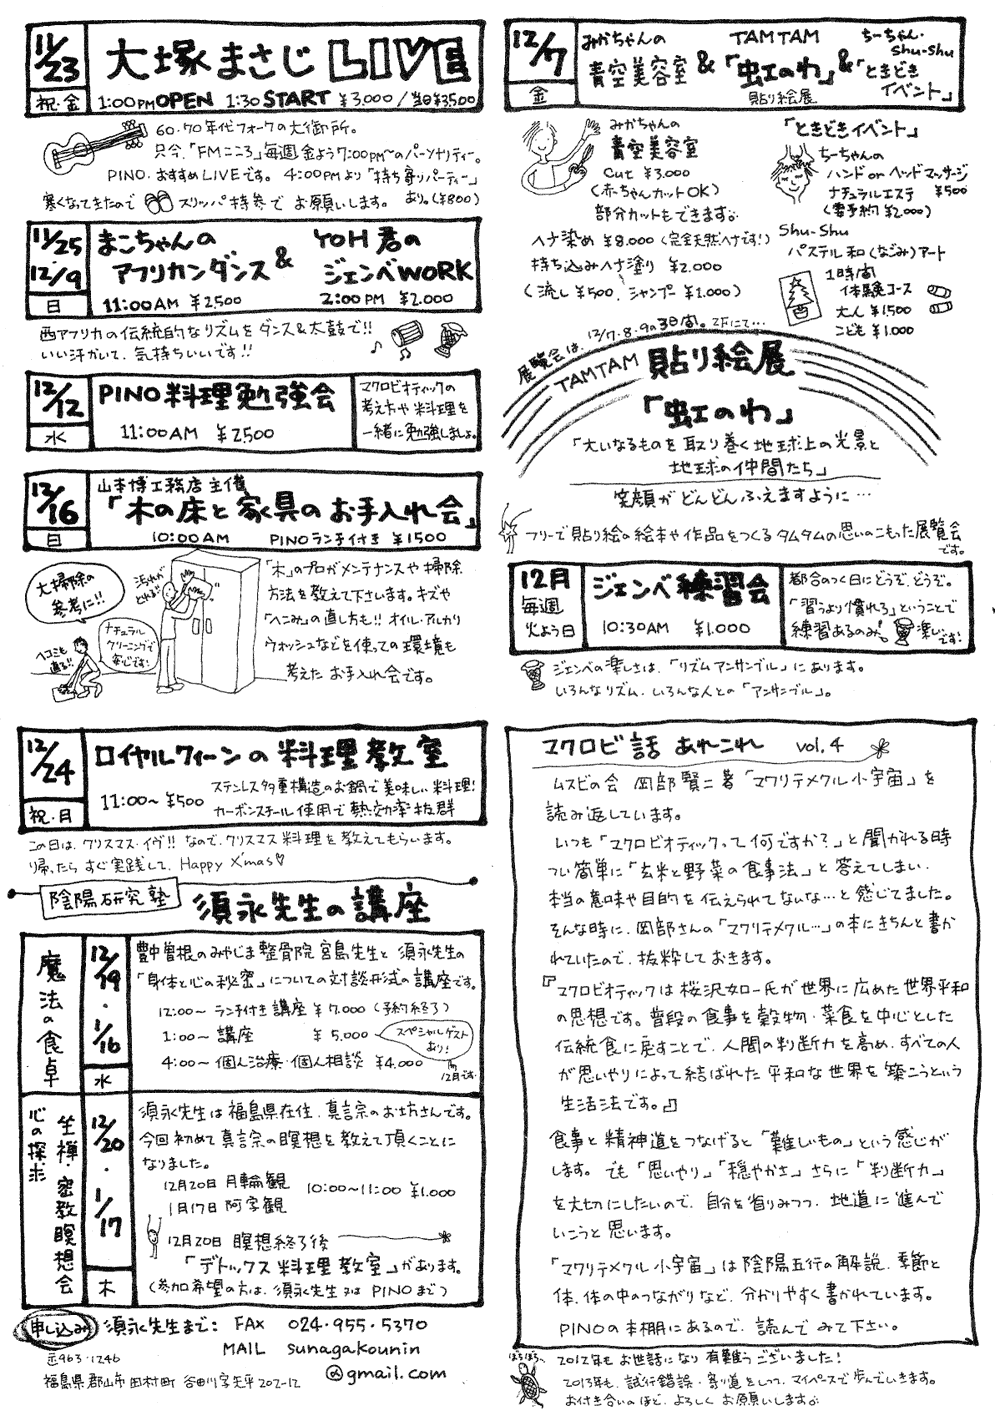 11/23
祝・金
大塚まさじ LIVE
1:00PM OPEN 1:30 START ¥3.000/当日¥3500
60・70年代フォークの大御所。
只今、「FMこころ」毎週金よう7:00PM〜のパーソナリティー。
PINO.おすすめLIVEです。 4:00PMより「持ち寄りパーティー」
寒くなってきたので スリッパ持参で お願いします。 あり。(¥800)
11/25・12/9
日
まこちゃんの アフリカンダンス & YOH君の ジェンベWORK
11:00AM ¥2500 2:00PM ¥2.000
西アフリカの伝統的なリズムをダンス&太鼓で!!
いい汗かいて、気持ちいいです!!
12/12
水
PINO料理勉強会
11:00AM ¥2500
マクロビオティックの
考え方や料理を
一緒に勉強しましょ。
12/16
日
山本博工務店主催
「木の床と家具のお手入れ会」
10:00AM PINOランチ付き ¥1500
大掃除の
参考に!!
汚れが
とれる!!
ヘコミも
直る!!
ナチュラル
クリーニングで
安心です!
「木」のプロがメンテナンスや掃除
方法を教えて下さいます。キズや
「へこみ」の直し方も!! オイル・アルカリ
ウォッシュなどを使っての環境も
考えたお手入れ会です。
12/24
祝・月
ロイヤルクィーンの料理教室
11:00〜 ¥500
ステンレス多重構造のお鍋で美味しい料理!
カーボンスチール使用で熱効率抜群
この日は、クリスマス・イヴ!! なので、クリスマス料理を教えてもらいます。
り帰ったら すぐ実践して、Happy X'mas♡
陰陽研究塾 須永先生の講座
魔法の食卓
12/19・1/16
水
豊中曽根のみやじま整骨院 宮島先生と 須永先生の
「身体と心の秘密」についての対談形式の講座です。
12:00〜 ランチ付き講座 ¥7.000 (予約終了)
1:00〜 講座 ¥5.000
スペシャルゲスト
あり!
4:00〜 個人治療・個人相談 ¥4.000
12月です
坐禅・密教瞑想会
心の探求
12/20・1/17
木
須永先生は福島県在住、真言宗のお坊さんです。
今回初めて真言宗の瞑想を教えて頂くことに
なりました。
12月20日 月輪観 10:00〜11:00 ¥1.000
1月17日 阿字観
12月20日 瞑想終了後
「デトックス料理教室」があります。
(参加希望の方は、須永先生又は PINOまで)
申し込み 須永先生まで: FAX 024-955-5370
MAIL sunagakounin
@gmail.com
〒963-1246
福島県郡山市田村町谷田川字荒平202-12
12/7
金
みかちゃんの 青空美容室 & TAMTAM 「虹のわ」 貼り絵展 & ちーちゃん・shu-shu 「ときどきイベント」
みかちゃんの
青空美容室
Cut ¥3.000
(赤ちゃんカットOK)
部分カットもできます。
ヘナ染め ¥8.000 (完全天然ヘナです!)
持ち込みヘナ塗り ¥2.000
(流し ¥500、シャンプー ¥1.000)
「ときどきイベント」
ちーちゃんの
ハンド or ヘッドマッサージ
ナチュラルエステ ¥500
(要予約 ¥2.000)
Shu-Shu
パステル和(なごみ)アート
1時間
体験コース
大人 ¥1500
こども ¥1.000
展覧会は、12/7・8・9の3日間。2Fにて…
TAMTAM 貼り絵展
「虹のわ」
「大いなるものを取り巻く地球上の光景と
地球の仲間たち」
笑顔がどんどんふえますように…
フリーで貼り絵の絵本や作品をつくるタムタムの思いのこもった展覧会
です。
12月
毎週
火よう日
ジェンベ練習会
10:30AM ¥1.000
都合のつく日にどうぞ、どうぞ。
「習うより慣れろ」ということで
練習あるのみ! 楽しいです!
ジェンベの楽しさは、「リズムアンサンブル」にあります。
いろんなリズム、いろんな人との「アンサンブル」。
マクロビ話 あれこれ vol.4
ムスビの会 岡部賢二著「マワリテメクル小宇宙」を
読み返しています。
いつも「マクロビオティックって何ですか?」と聞かれる時
つい簡単に「玄米と野菜の食事法」と答えてしまい、
本当の意味や目的を伝えられてないな…と感じてました。
そんな時に、岡部さんの「マワリテメクル…」の本にきちんと書か
れていたので、抜粋しておきます。
『マクロビオティックは桜沢如一氏が世界に広めた世界平和
の思想です。普段の食事を穀物・菜食を中心とした
伝統食に戻すことで、人間の判断力を高め、すべての人
が思いやりによって結ばれた平和な世界を築こうという
生活法です。』
食事と精神道をつなげると「難しいもの」という感じが
します。でも「思いやり」「穏やかさ」さらに「判断力」
を大切にしたいので、自分を省りみつつ、地道に進んで
いこうと思います。
「マワリテメクル小宇宙」は陰陽五行の解説、季節と
体、体の中のつながりなど、分かりやすく書かれています。
PINOの本棚にあるので、読んでみて下さい。
ぼちぼち〜
2012年もお世話になり有難うございました!
2013年も、試行錯誤・寄り道をしつつ、マイペースで歩んでいきます。
お付き合いのほど、よろしくお願いします。